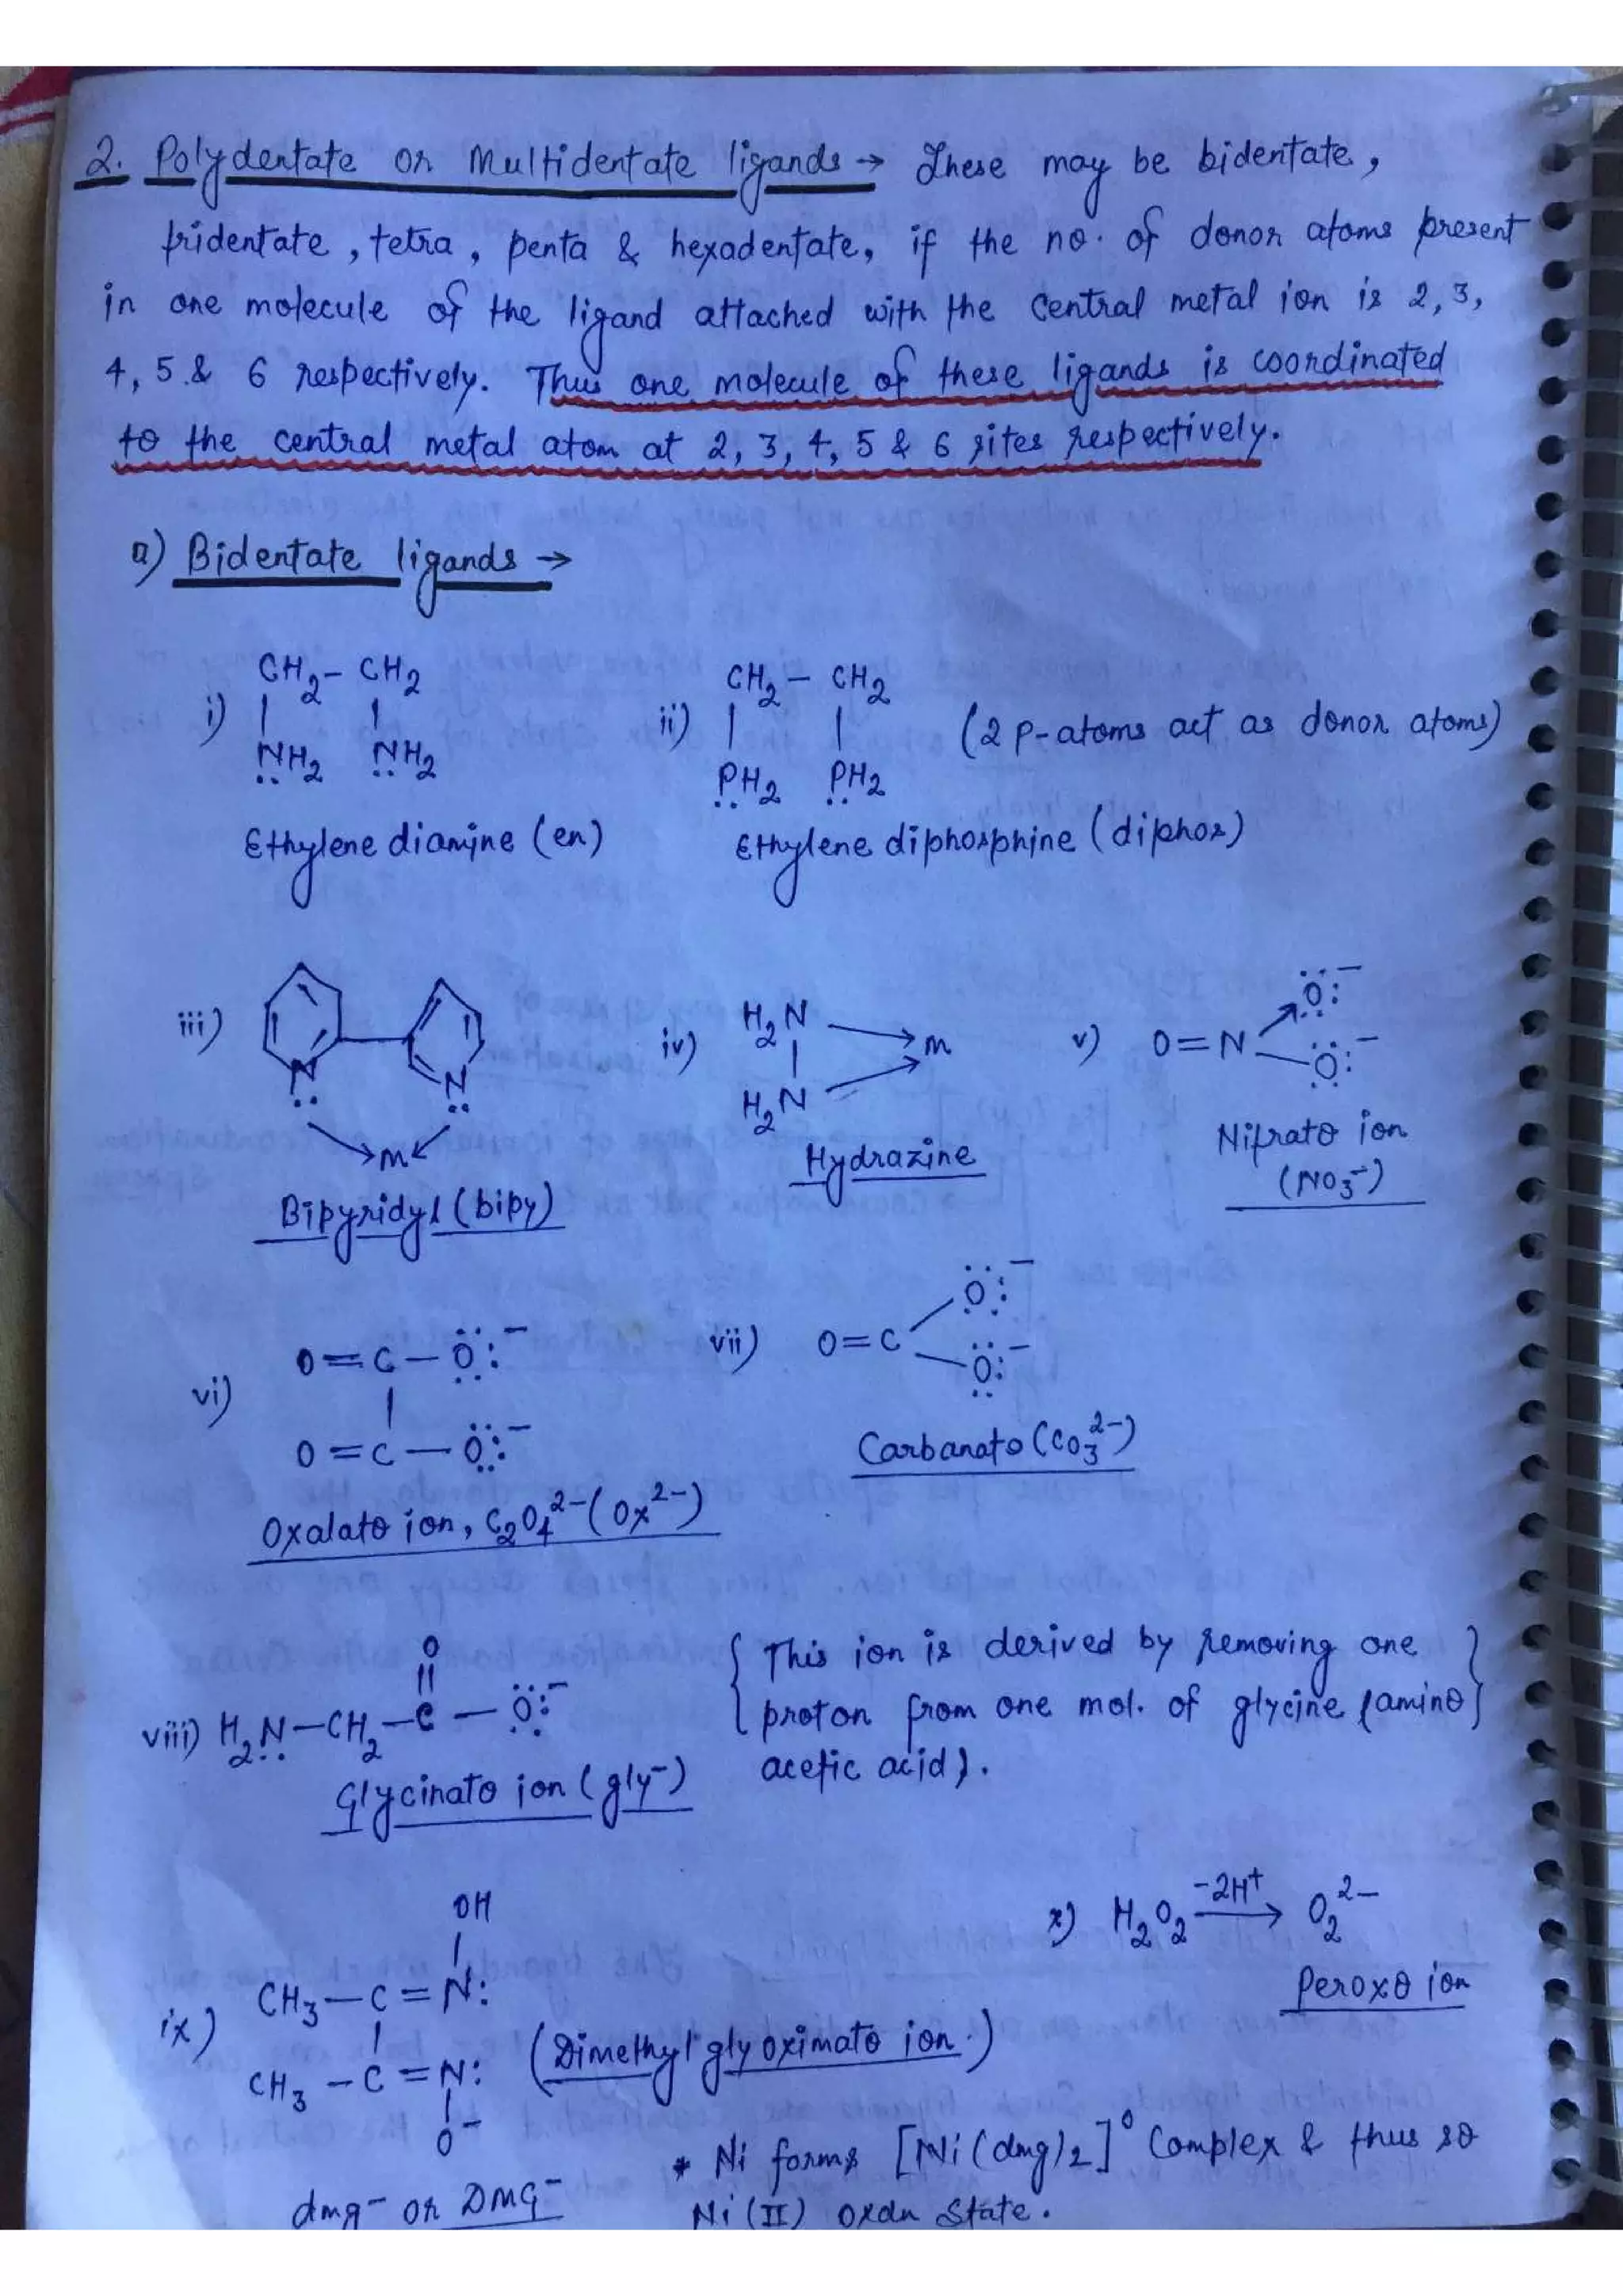 2. Polydentate or Multidentate ligands → These may be bidentate,
tridentate, tetra, penta & hexadentate, if the no. of donor atoms present
in one molecule of the ligand attached with the Central metal ion is 2, 3,
4, 5 & 6 respectively. Thus one molecule of these ligands is coordinated
to the central metal atom at 2, 3, 4, 5 & 6 sites respectively.
a) Bidentate ligands →
i) CH₂ – CH₂
NH₂ NH₂
Ethylene diamine (en)
ii) CH₂ – CH₂ (2 P-atoms act as donor atoms)
PH₂ PH₂
Ethylene diphosphine (diphos)
iii) N N
→M←
Bipyridyl (bipy)
iv) H₂N → M
H₂N
Hydrazine
v) O=N → O:⁻
– O:⁻
Nitrato ion
(NO₃⁻)
vi) O=C–O:⁻
O=C–O:⁻
Oxalato ion, C₂O₄²⁻ (Ox²⁻)
vii) O=C O:⁻
O:⁻
Carbanato (CO₃²⁻)
O
viii) H₂N–CH₂–C–O:⁻
Glycinato ion (gly⁻)
{ This ion is derived by removing one
proton from one mol. of glycine (amino }
acetic acid).
OH
ix) CH₃–C=N:
CH₃–C=N:
O⁻
(Dimethyl glyoximato ion.)
dmg⁻ or DMG⁻
x) H₂O₂ –2H⁺→ O₂²⁻
Peroxo ion
* Ni forms [Ni(dmg)₂]⁰ Complex & thus so
Ni(II) oxdn State.